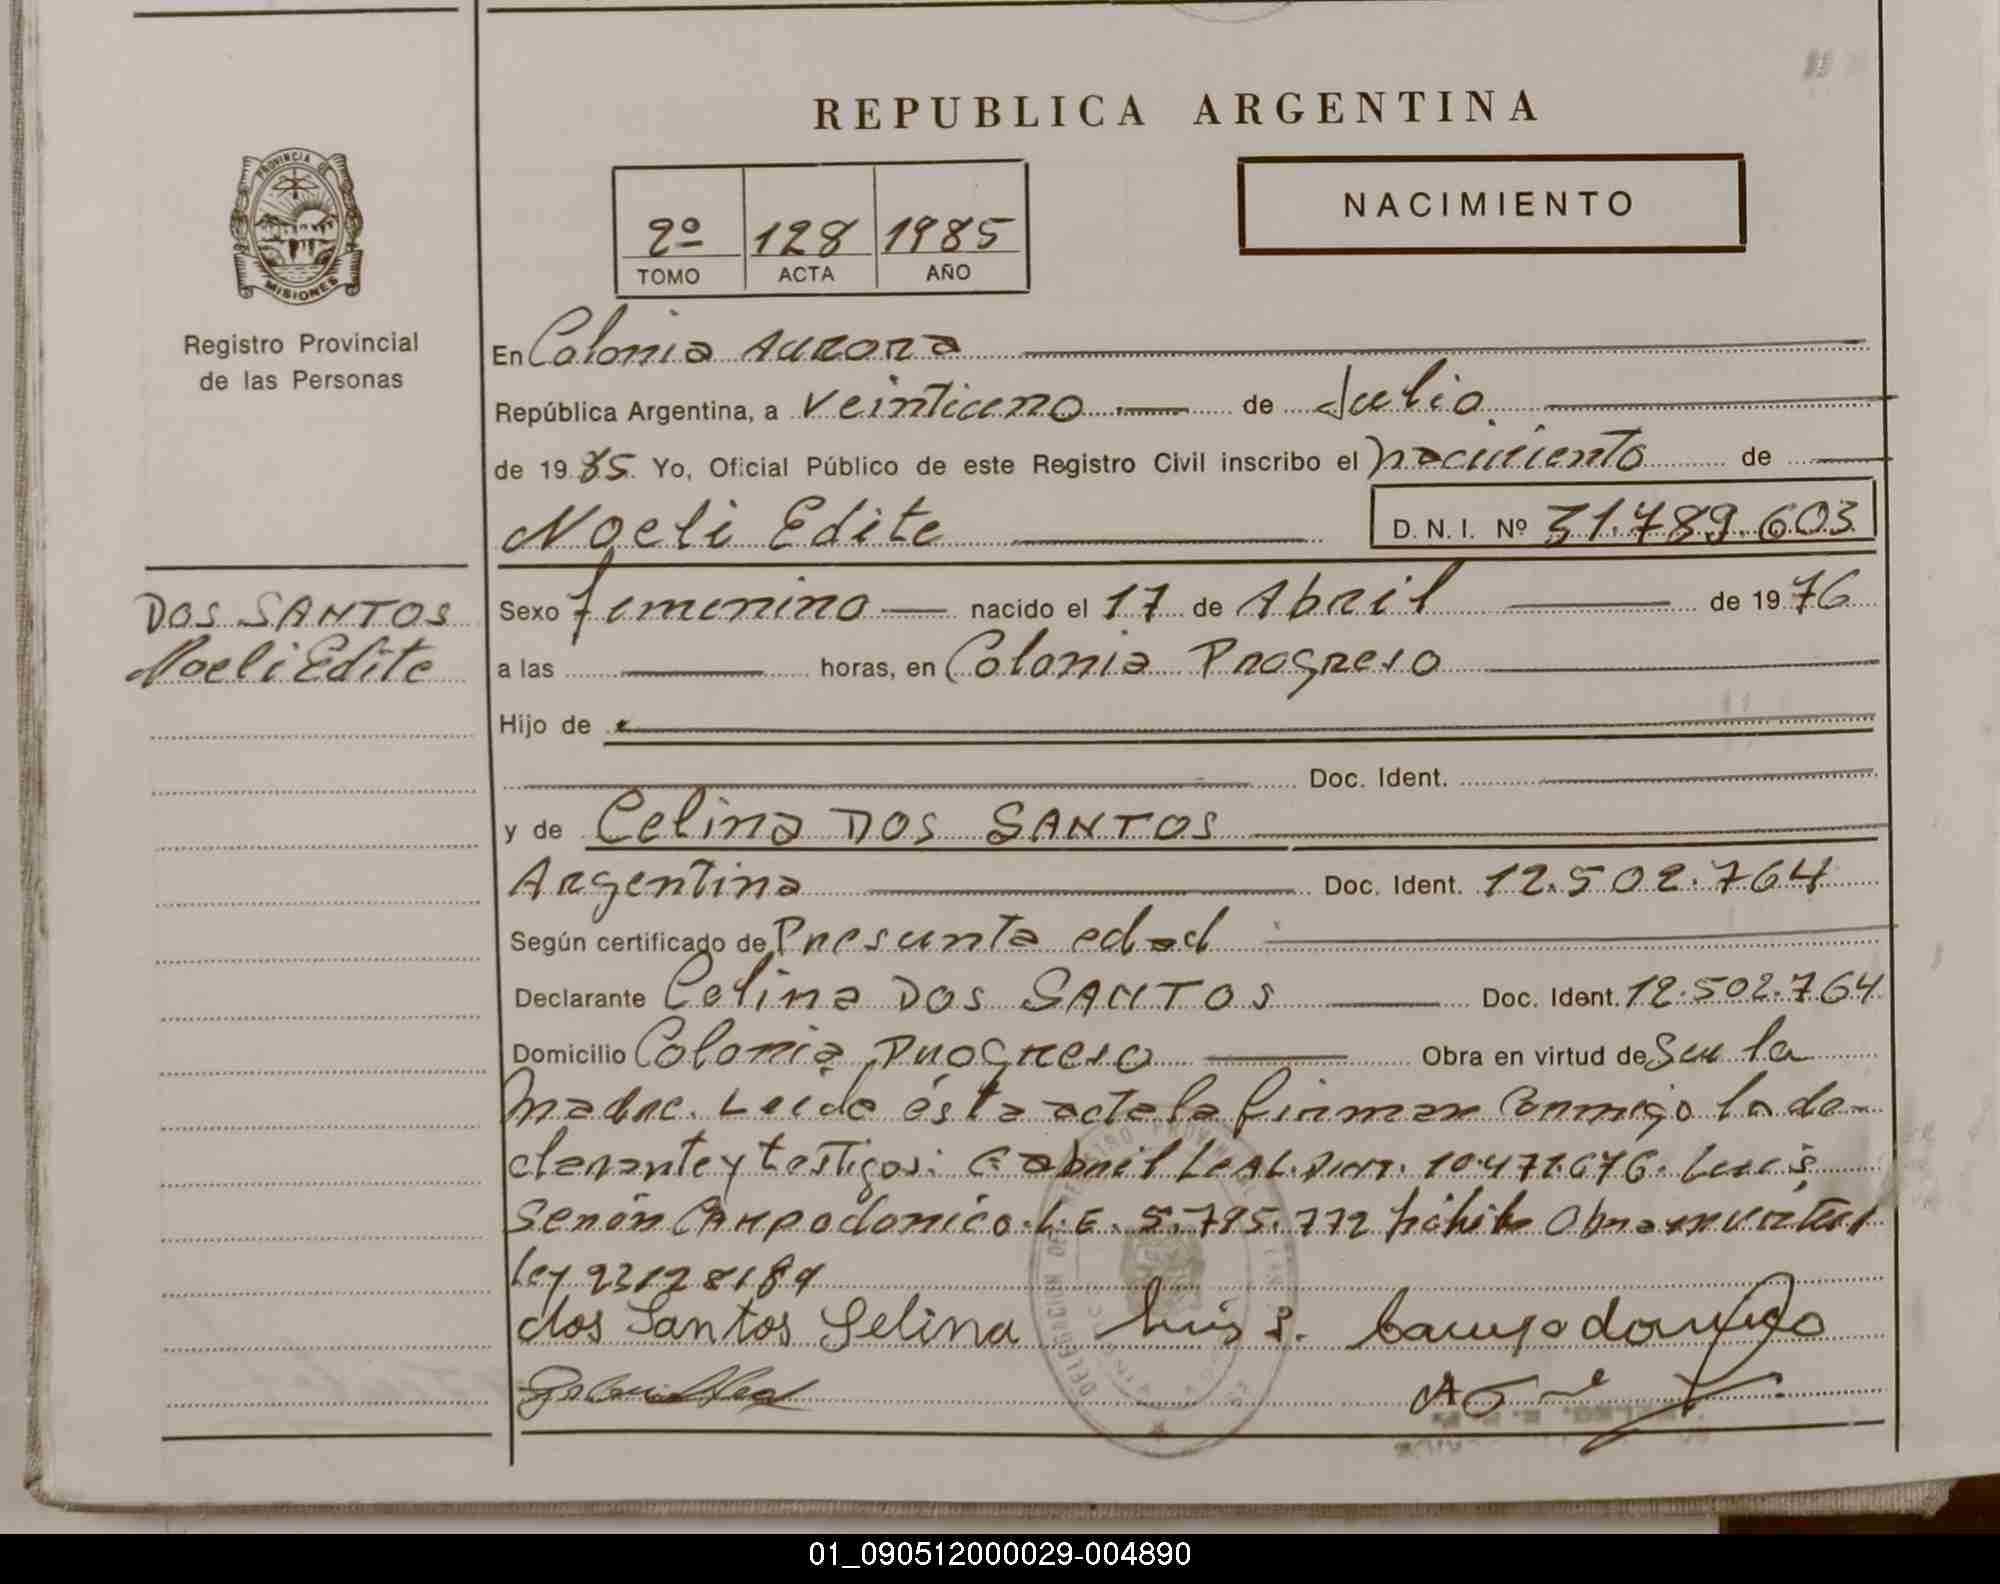 REPUBLICA ARGENTINA
PROVINCIA DE
MISIONES
Registro Provincial
de las Personas
2º 128 1985
TOMO ACTA AÑO
NACIMIENTO
En Colonia Aurora
República Argentina, a veintiuno de Julio
de 19 85. Yo, Oficial Público de este Registro Civil inscribo el nacimiento de
Noeli Edite D. N. I. Nº 31.789.603
DOS SANTOS
Noeli Edite
Sexo femenino nacido el 17 de Abril de 19 76
a las horas, en Colonia Progreso
Hijo de
Doc. Ident.
y de Celina DOS SANTOS
Argentina Doc. Ident. 12.502.764
Según certificado de Presunta edad
Declarante Celina DOS SANTOS Doc. Ident. 12.502.764
Domicilio Colonia Progreso Obra en virtud de Ser la
madre. Leida ésta acta la firman conmigo la de-
clarante y testigos: Gabriel LEAL. 10.471.676. Luis
Senón CAMPODONICO. L.E. 5.795.772 Obra en virtud
Ley 23128/84
dos Santos Selina Luis S. Campodonico
01_090512000029-004890